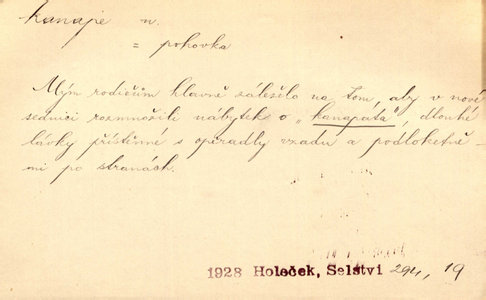 kanape n.
= pohovka
Mým rodičům hlavně záleželo na tom, aby v nové
sednici rozmnožili nábytek o „kanapata", dlouhé
lávky přístěnné s operadly vzadu a podloketně-
mi po stranách.
1928 Holeček, Selství 294, 19